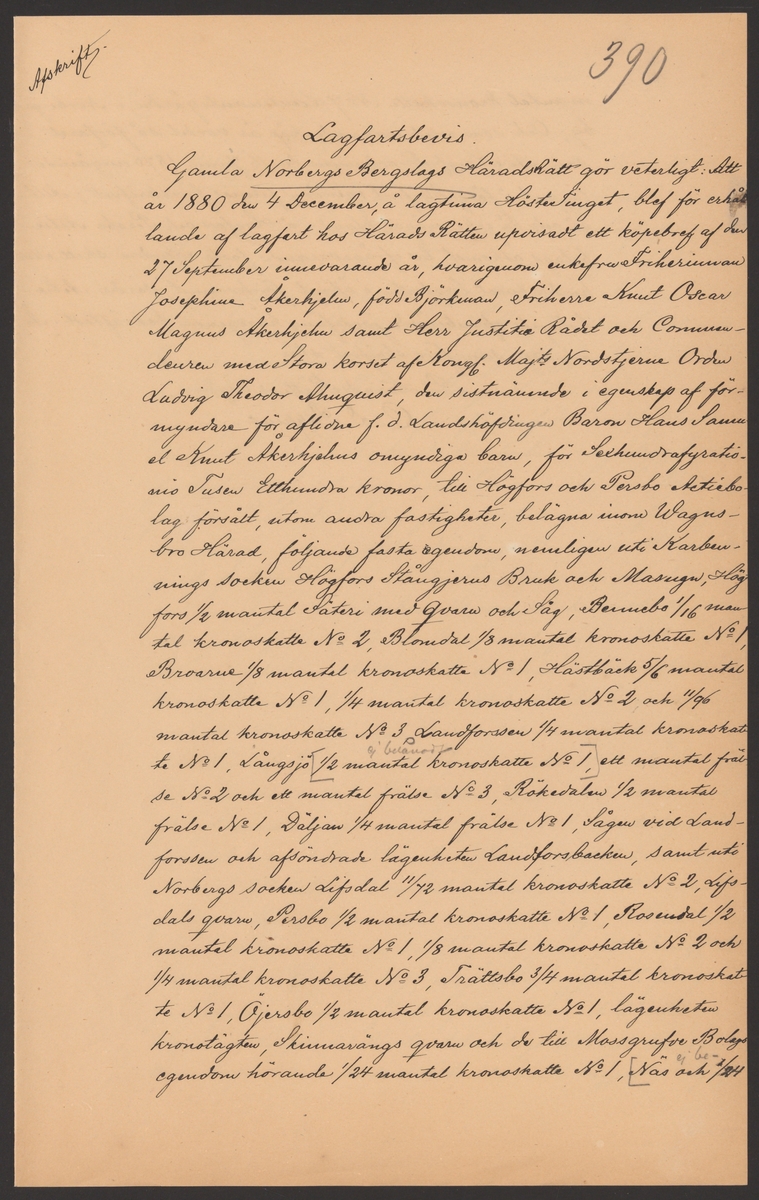 Afskrift.
390
Lagfartsbevis.
Gamla Norbergs Bergslags Häradsrätt gör veterligt: Att
år 1880 den 4 December, å lagtima Höste Tinget, blef för erhål
lande af lagfart hos Härads Rätten uppvisadt ett köpebref af den
27 September innevarande år, hvarigenom enkefru Friherinnan
Josephine Åkerhjelm, född Björkman, Friherre Knut Oscar
Magnus Åkerhjelm samt Herr Justitiæ Rådet och Commen-
deuren med Stora korset af Kongl. Majts Nordstjerne Orden
Ludvig Theodor Almquist, den sistnämnde i egenskap af för-
myndare för aflidne f. d. Landshöfdingen Baron Hans Samu
el Knut Åkerhjelms omyndiga barn, för Sexhundrafyratio-
nio Tusen Etthundra kronor, till Högfors och Persbo Actiebo-
lag försålt, utom andra fastigheter, belägna inom Wagns-
bro Härad, följande fasta egendom, nemligen uti Karben-
nings socken Högfors Stångjerns Bruk och Masugn, Hög
fors 1/2 mantal Säteri med qvarn och Såg, Bennebo 1/16 man
tal kronoskatte No 2, Blomdal 1/8 mantal kronoskatte No 1,
Broarne 1/8 mantal kronoskatte No 1, Hästbäck 5/6 mantal
kronoskatte No 1, 1/4 mantal kronoskatte No 2 och 11/96
mantal kronoskatte No 3 Landforssen 1/4 mantal kronoskat
ej belånadt
te No 1, Långsjö [1/2 mantal kronoskatte No 1,] ett mantal fräl
se No 2 och ett mantal frälse No 3, Rökedalen 1/2 mantal
frälse No 1, Däljan 1/4 mantal frälse No 1, Sågen vid Land-
forssen och afsöndrade lägenheten Landforsbacken, samt uti
Norbergs socken Lifsdal 11/72 mantal kronoskatte No 2, Lifs-
dals qvarn, Persbo 1/2 mantal kronoskatte No 1, Rosendal 1/2
mantal kronoskatte No 1, 1/8 mantal kronoskatte No 2 och
1/4 mantal kronoskatte No 3, Trättsbo 3/4 mantal kronoskat
te No 1, Öjersbo 1/2 mantal kronoskatte No 1, lägenheten
kronotägten, Skinnarängs qvarn och de till Mossgrufve Bolags
ej be-
egendom hörande 1/24 mantal kronoskatte No 1, [Näs och /24